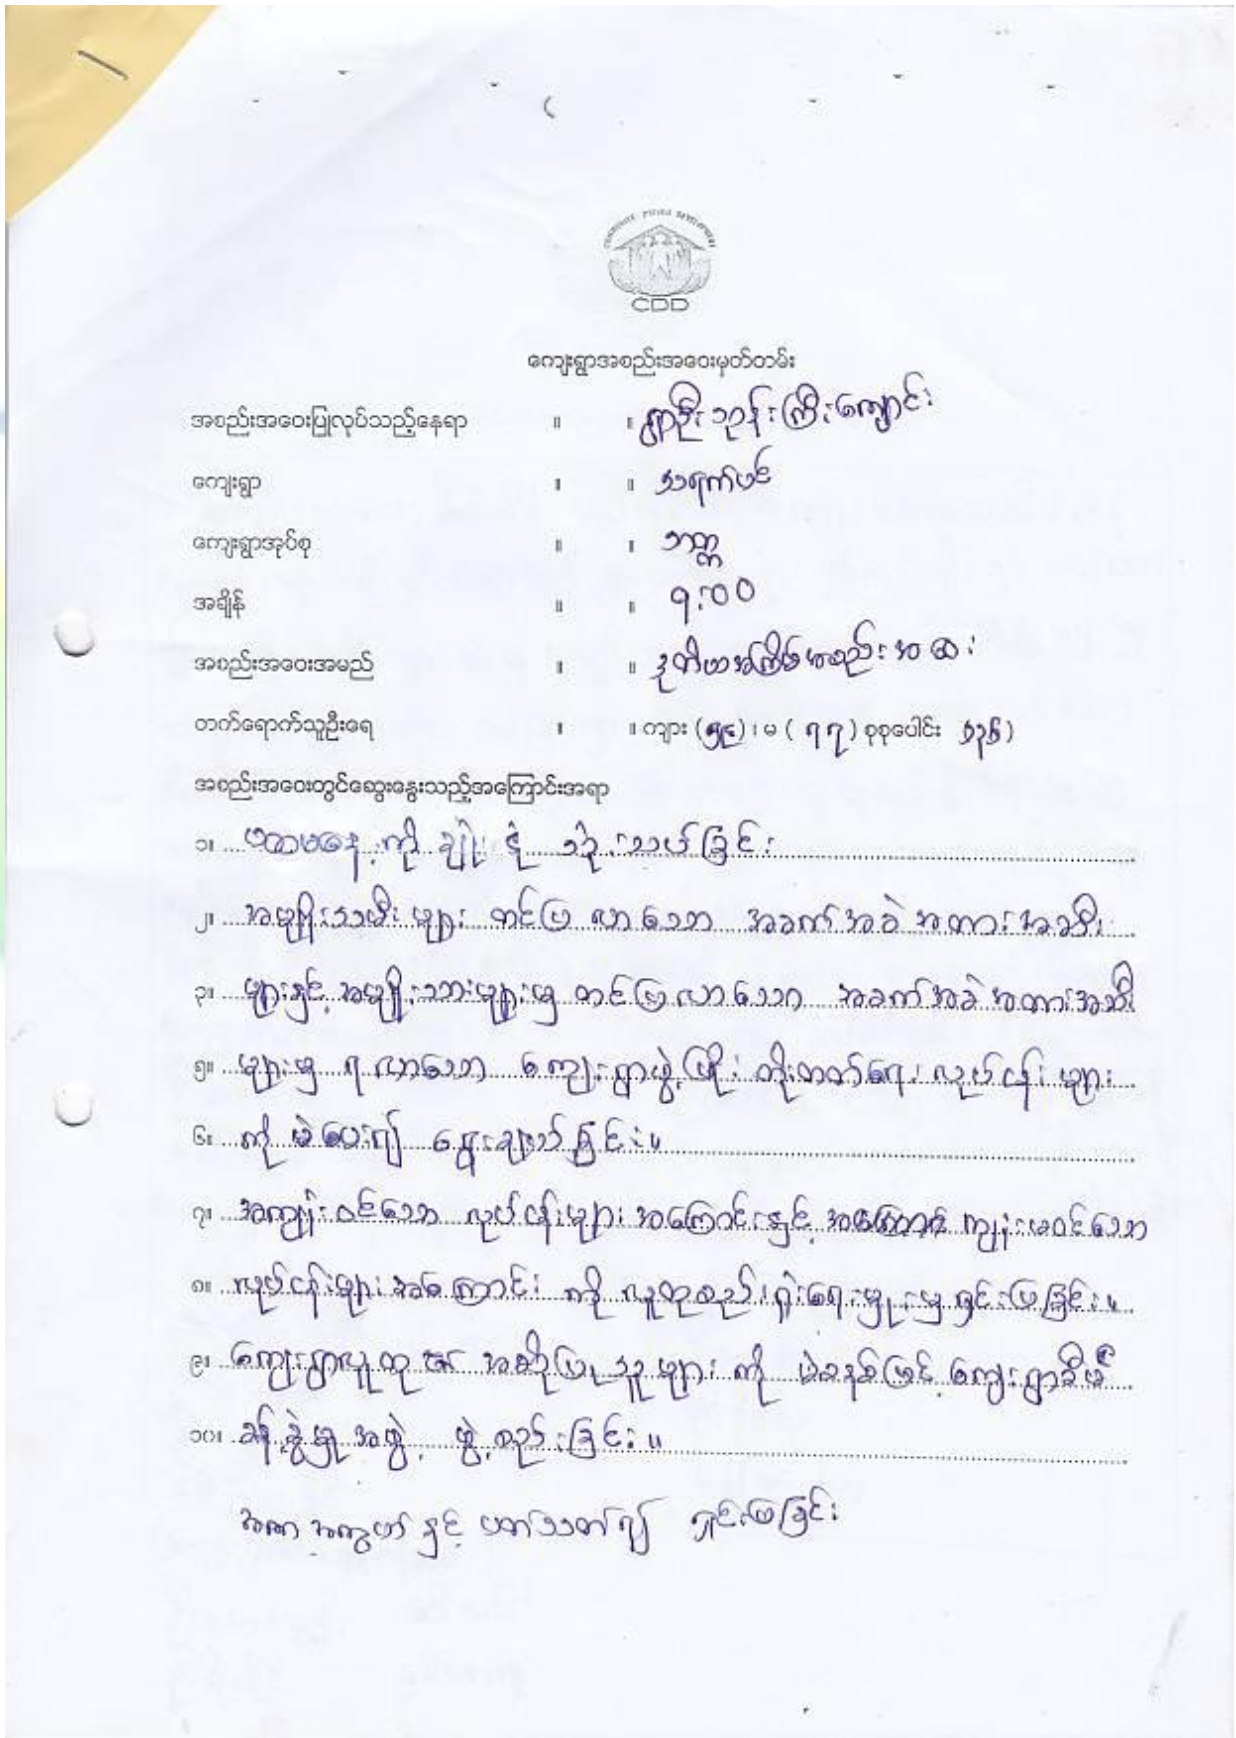 CDD
ကျေးရွာအစည်းအဝေးမှတ်တမ်း
အစည်းအဝေးပြုလုပ်သည့်နေရာ ။ ။ ရွာဦးဘုန်းကြီးကျောင်း
ကျေးရွာ ။ ။ သရက်ပင်
ကျေးရွာအုပ်စု ။ ။
အချိန် ။ ။ ၇:၀၀
အစည်းအဝေးအမည် ။ ။ ဒုတိယအကြိမ်အစည်းအဝေး
တက်ရောက်သူဦးရေ ။ ။ ကျား (၅၉) ၊ မ ( ၇၇ ) စုစုပေါင်း ၁၃၆ )
အစည်းအဝေးတွင်ဆွေးနွေးသည့်အကြောင်းအရာ
၁။ ပထမနေ့ကို ချုံ့ငုံ သုံးသပ်ခြင်း
၂။ အမျိုးသမီးများ တင်ပြလာသော အခက်အခဲအတားအဆီး
၃။ များနှင့် အမျိုးသားများမှ တင်ပြလာသော အခက်အခဲအတားအဆီး
၅။ များမှ ရလာသော ကျေးရွာဖွံ့ဖြိုးတိုးတက်ရေး လုပ်ငန်းများ
၆။ ကို မဲပေး၍ ရွေးချယ်ခြင်း။
၇။ အကျုံးဝင်သော လုပ်ငန်းများအကြောင်းနှင့် ကျုံးမဝင်သော
၈။ လုပ်ငန်းများအကြောင်း ကို လူထုစည်းရုံးရေးမှူးမှ ရှင်းပြခြင်း။
၉။ ကျေးရွာလူထု၏ အဆိုပြုသူများ ကို မဲစနစ်ဖြင့် ကျေးရွာစီမံ
၁၀။ ခန့်ခွဲမှုအဖွဲ့ ဖွဲ့စည်းခြင်း။
နှင့် ပတ်သတ်၍ ရှင်းပြခြင်း